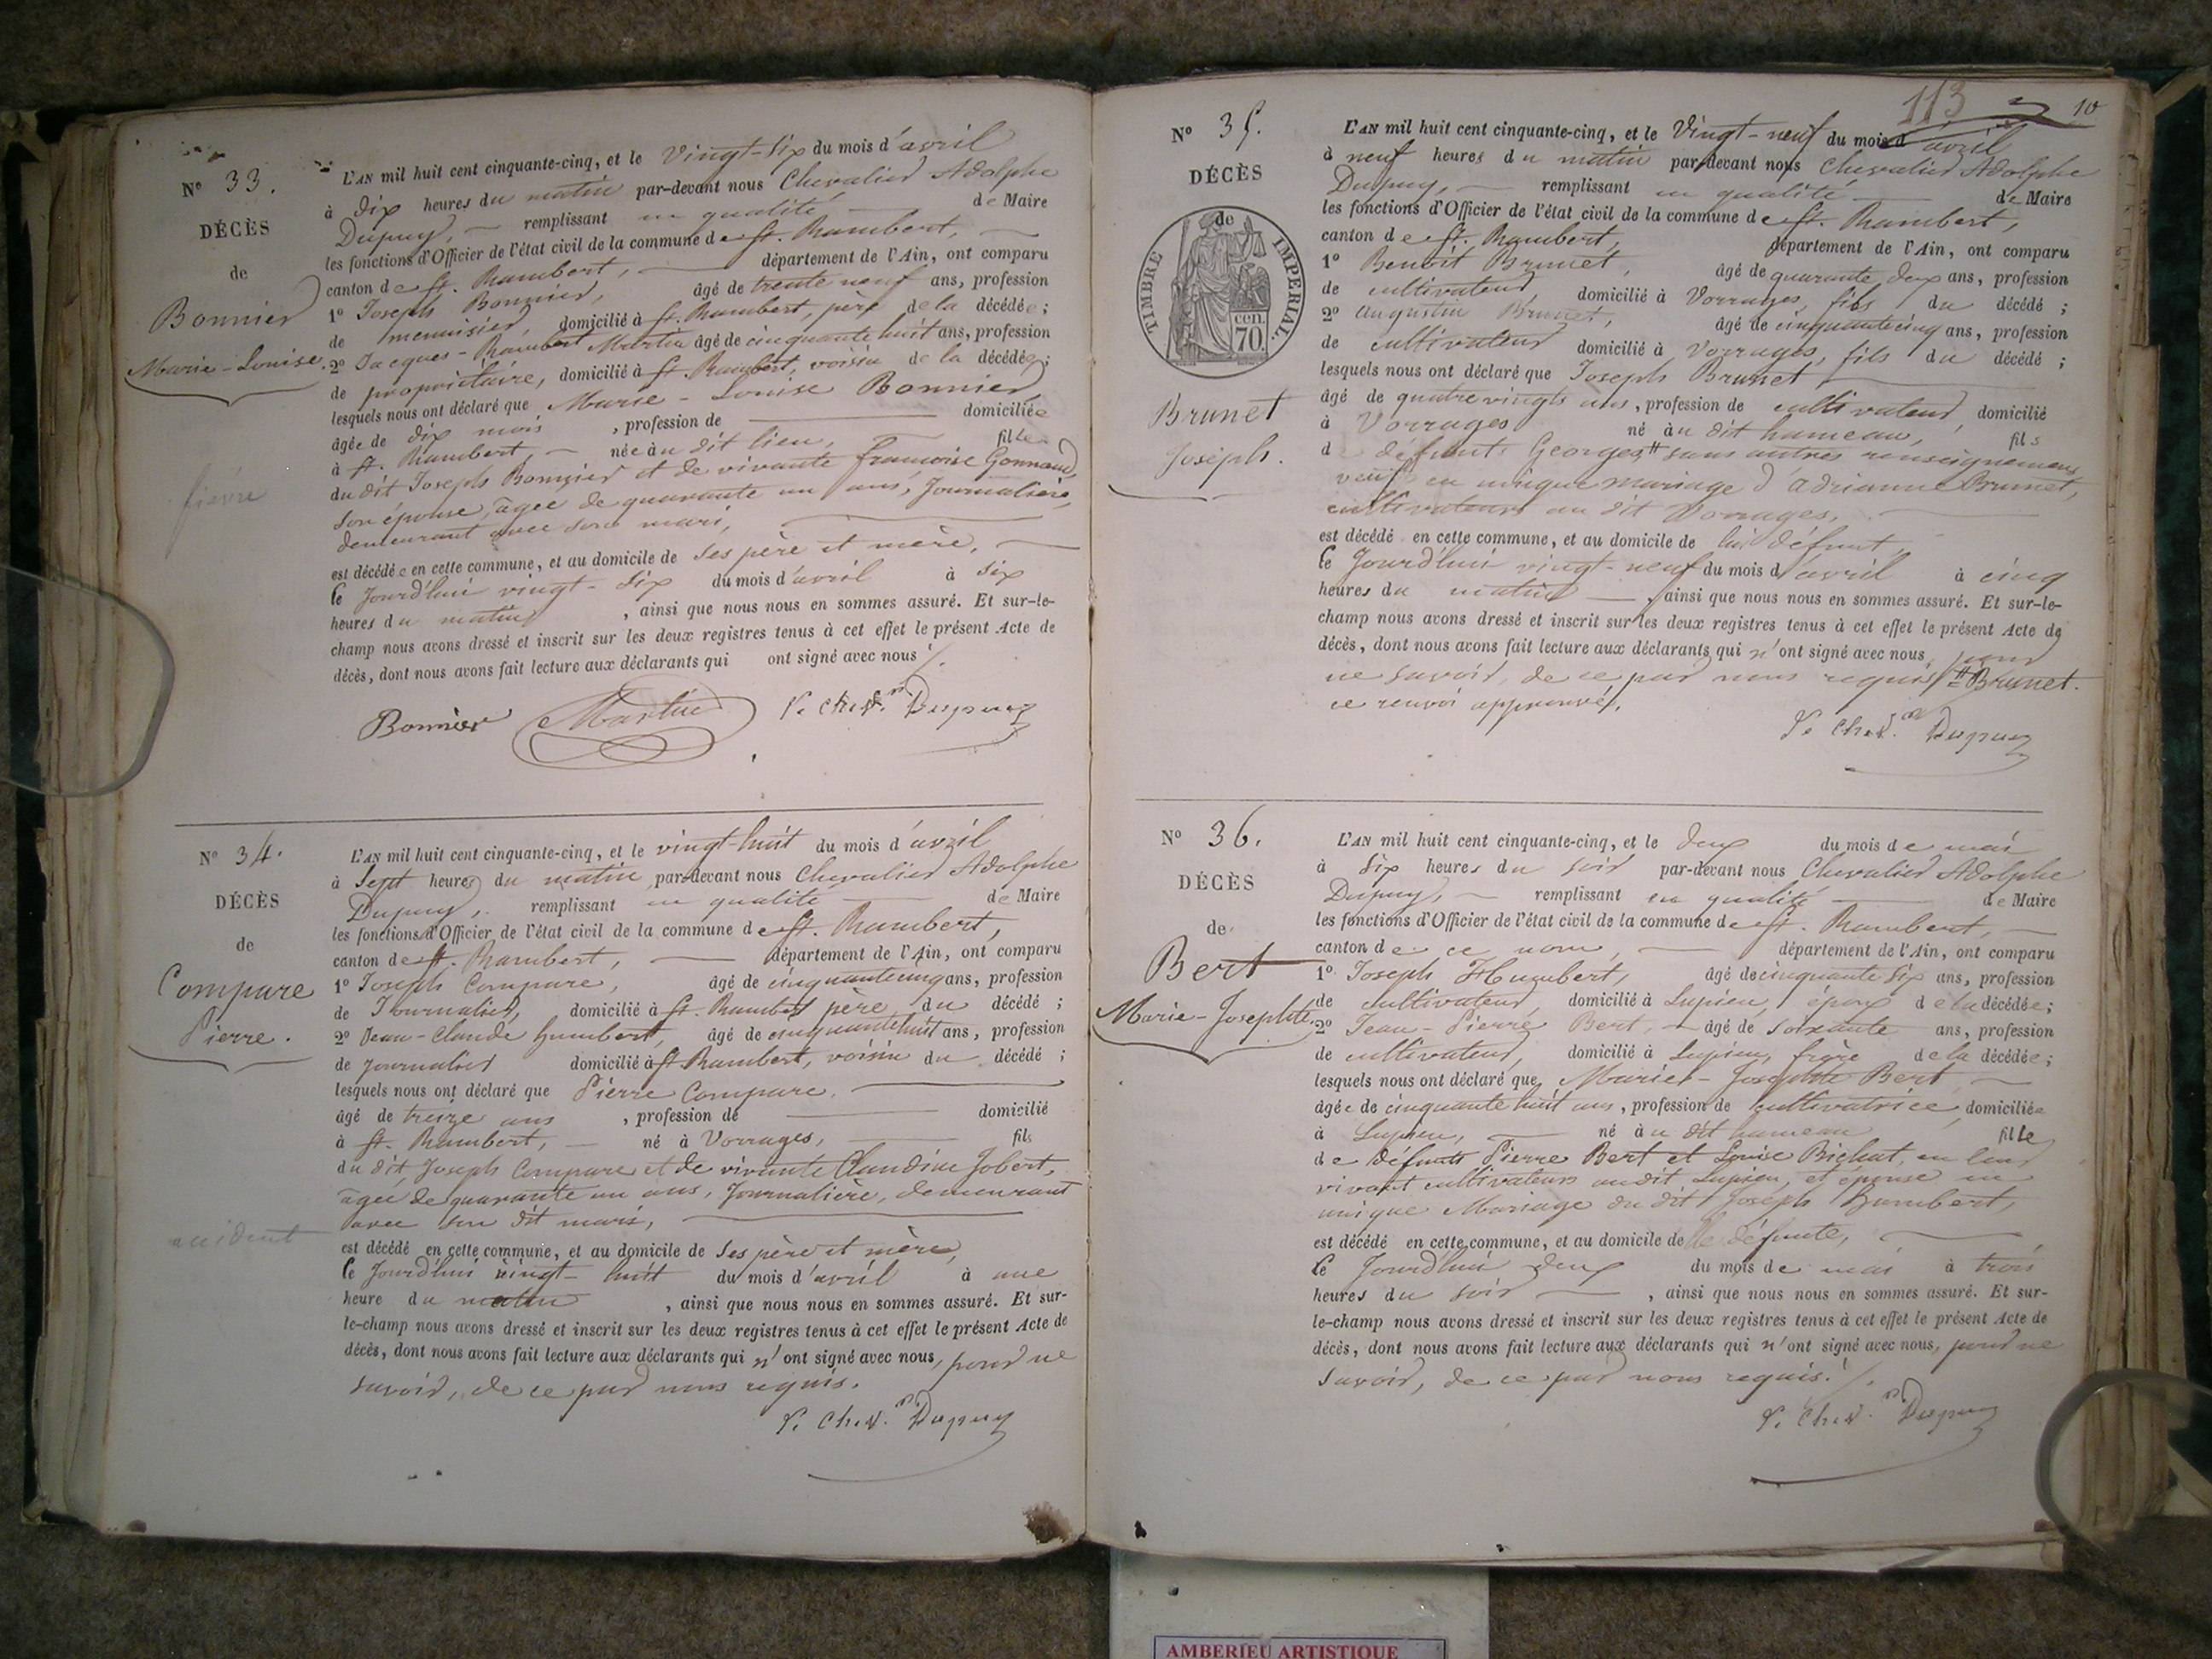 N° 33.
DÉCÈS
de
Bonnier
Marie-Louise.
fièvre
L'AN mil huit cent cinquante-cinq, et le Vingt-six du mois d'avril
à dix heures du matin par-devant nous Chevalier Adolphe
Dupuy, remplissant en qualité de Maire
les fonctions d'Officier de l'état civil de la commune de St. Rambert,
canton de St. Rambert, département de l'Ain, ont comparu
1° Joseph Bonnier, âgé de trente neuf ans, profession
de menuisier, domicilié à St. Rambert, père de la décédée;
2° Jacques-Rambert Martin âgé de cinquante huit ans, profession
de propriétaire, domicilié à St. Rambert, voisin de la décédée;
lesquels nous ont déclaré que Marie-Louise Bonnier
âgée de dix mois, profession de domiciliée
à St. Rambert, née au dit lieu, fille
du dit Joseph Bonnier et de vivante françoise Gonnand,
son épouse, âgée de quarante un ans, Journalière,
demeurant avec son mari,
est décédée en cette commune, et au domicile de ses père et mère,
le Jourd'hui vingt-six du mois d'avril à six
heures du matin, ainsi que nous nous en sommes assuré. Et sur-le-
champ nous avons dressé et inscrit sur les deux registres tenus à cet effet le présent Acte de
décès, dont nous avons fait lecture aux déclarants qui ont signé avec nous /.
Bonnier Martin Dupuy
N° 34.
DÉCÈS
de
Compare
Pierre.
accident
L'AN mil huit cent cinquante-cinq, et le vingt-huit du mois d'avril
à Sept heures du matin par-devant nous Chevalier Adolphe
Dupuy, remplissant en qualité de Maire
les fonctions d'Officier de l'état civil de la commune de St. Rambert,
canton de St. Rambert, département de l'Ain, ont comparu
1° Joseph Compare, âgé de cinquante cinq ans, profession
de Journalier, domicilié à St. Rambert père du décédé;
2° Jean-Claude humbert, âgé de cinquante huit ans, profession
de journalier domicilié à St Rambert, voisin du décédé;
lesquels nous ont déclaré que Pierre Compare.
âgé de treize ans, profession de domicilié
à St. Rambert, né à Vorrages, fils
du dit Joseph Compare et de vivante Claudine Jobert,
âgée de quarante un ans, Journalière, demeurant
avec son dit mari,
est décédé en cette commune, et au domicile de ses père et mère,
le Jourd'hui vingt-huit du mois d'avril à une
heure du matin, ainsi que nous nous en sommes assuré. Et sur-
le-champ nous avons dressé et inscrit sur les deux registres tenus à cet effet le présent Acte de
décès, dont nous avons fait lecture aux déclarants qui n'ont signé avec nous, pour ne
savoir, de ce par nous requis.
Dupuy
113
10
N° 35.
DÉCÈS
de
TIMBRE IMPERIAL.
cen.
70.
Brunet
Joseph.
L'AN mil huit cent cinquante-cinq, et le Vingt-neuf du mois d'avril
à neuf heures du matin par-devant nous Chevalier Adolphe
Dupuy, remplissant en qualité de Maire
les fonctions d'Officier de l'état civil de la commune de St. Rambert,
canton de St. Rambert, département de l'Ain, ont comparu
1° Benoît Brunet, âgé de quarante deux ans, profession
de cultivateur domicilié à Vorrages, fils du décédé;
2° augustin Brunet, âgé de cinquante cinq ans, profession
de cultivateur domicilié à Vorrages, fils du décédé;
lesquels nous ont déclaré que Joseph Brunet
âgé de quatre vingts ans, profession de cultivateur, domicilié
à Vorrages né au dit hameau, fils
de défunts Georges # sans autres renseignemens,
veuf en unique mariage d'adrianne Brunet,
cultivateurs au dit Vorrages,
est décédé en cette commune, et au domicile de lui défunt,
le Jourd'hui vingt-neuf du mois d'avril à cinq
heures du matin, ainsi que nous nous en sommes assuré. Et sur-le-
champ nous avons dressé et inscrit sur les deux registres tenus à cet effet le présent Acte de
décès, dont nous avons fait lecture aux déclarants qui n'ont signé avec nous, pour
ne savoir, de ce par nous requis /. # Brunet.
ce renvoi approuvé.
Dupuy
N° 36.
DÉCÈS
de
Bert
Marie-Josephte.
L'AN mil huit cent cinquante-cinq, et le deux du mois de mai
à six heures du soir par-devant nous Chevalier Adolphe
Dupuy, remplissant en qualité de Maire
les fonctions d'Officier de l'état civil de la commune de St. Rambert,
canton de ce nom, département de l'Ain, ont comparu
1° Joseph Humbert, âgé de cinquante six ans, profession
de cultivateur, domicilié à Lupieu, époux de la décédée;
2° Jean-Pierre Bert, âgé de soixante ans, profession
de cultivateur, domicilié à Lupieu, frère de la décédée;
lesquels nous ont déclaré que Marie-Josephte Bert
âgée de cinquante huit ans, profession de cultivatrice, domiciliée
à Lupieu, né au dit hameau fille
de défunts Pierre Bert et Louise Bichat, en leur
vivant cultivateurs au dit Lupieu, et épouse en
unique Mariage du dit Joseph Humbert,
est décédé en cette commune, et au domicile de défunte,
le Jourd'hui deux du mois de mai à trois
heures du soir, ainsi que nous nous en sommes assuré. Et sur-
le-champ nous avons dressé et inscrit sur les deux registres tenus à cet effet le présent Acte de
décès, dont nous avons fait lecture aux déclarants qui n'ont signé avec nous, pour ne
savoir, de ce par nous requis. /.
Dupuy
AMBERIEU ARTISTIQUE